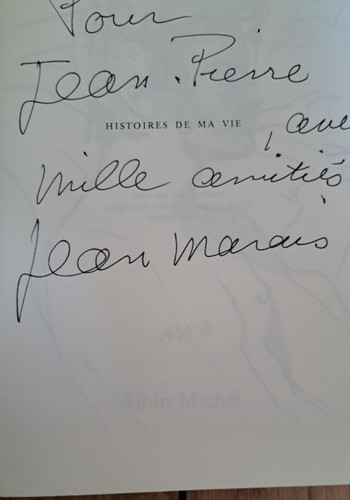 Pour
Jean-Pierre
HISTOIRES DE MA VIE
, avec
mille amitiés
Jean Marais
Albin Michel